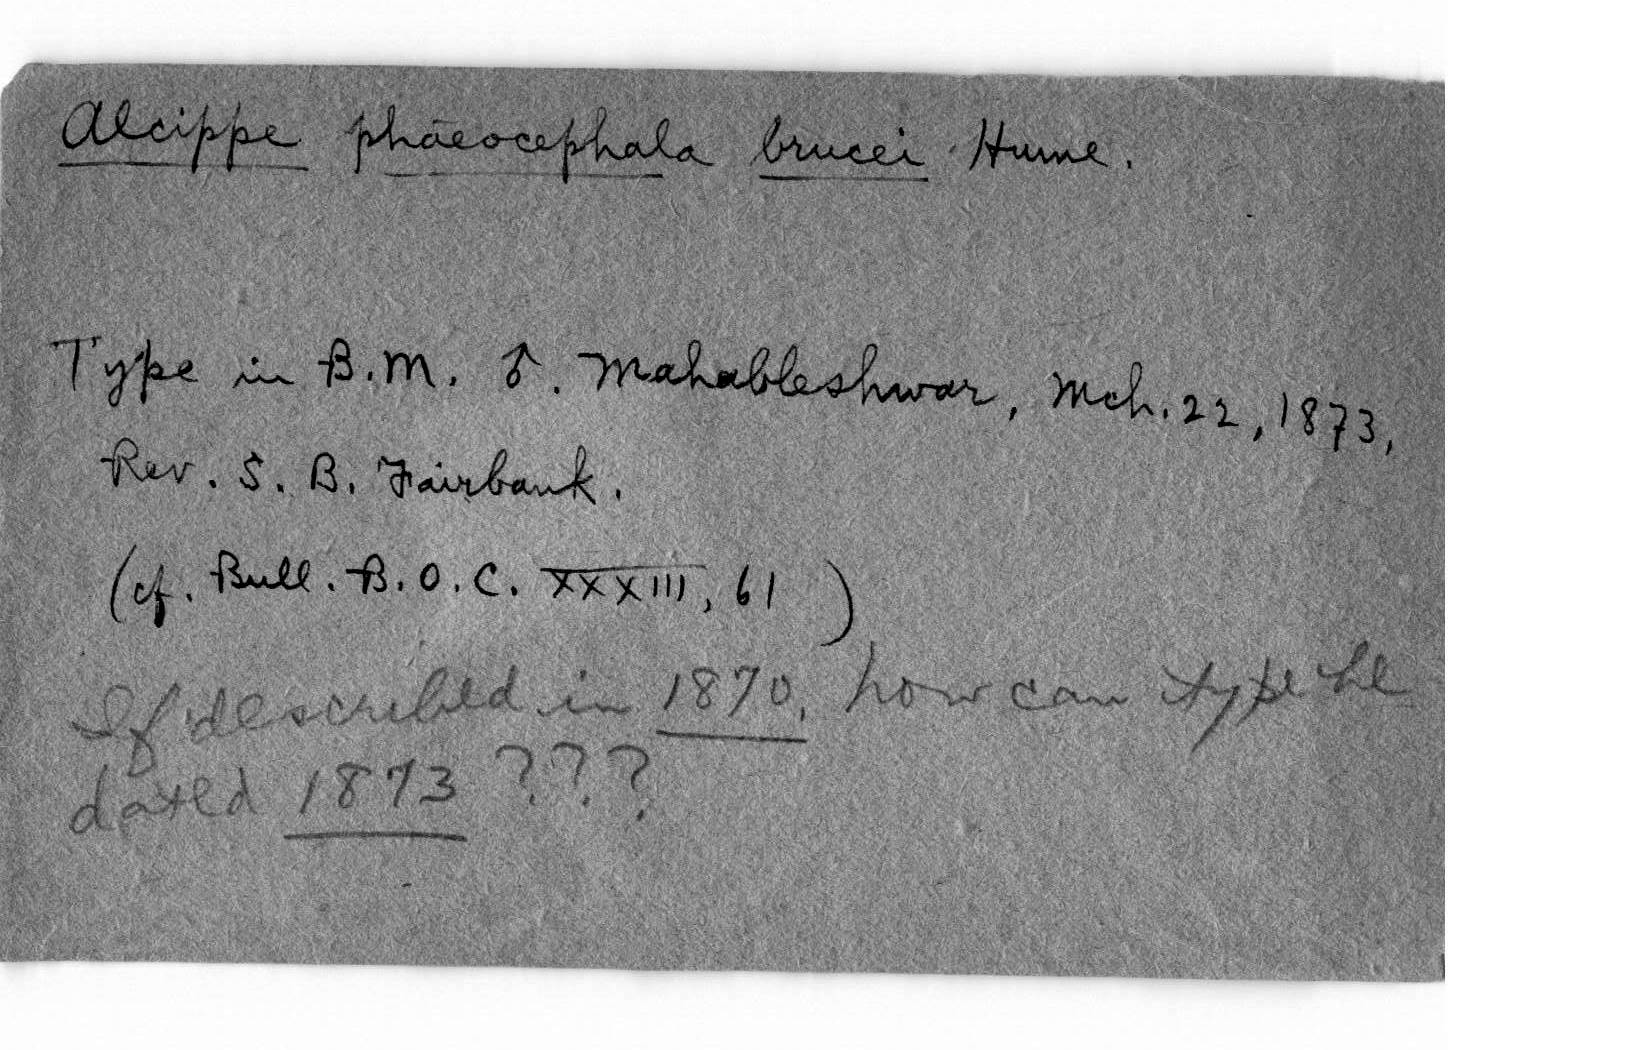 Alcippe phaeocephala brucei Hume.
Type in B.M. ♂. Mahableshwar, Mch. 22, 1873,
Rev. S. B. Fairbank.
(cf. Bull. B.O.C. XXXIII, 61)
If described in 1870, how can type be
dated 1873 ???